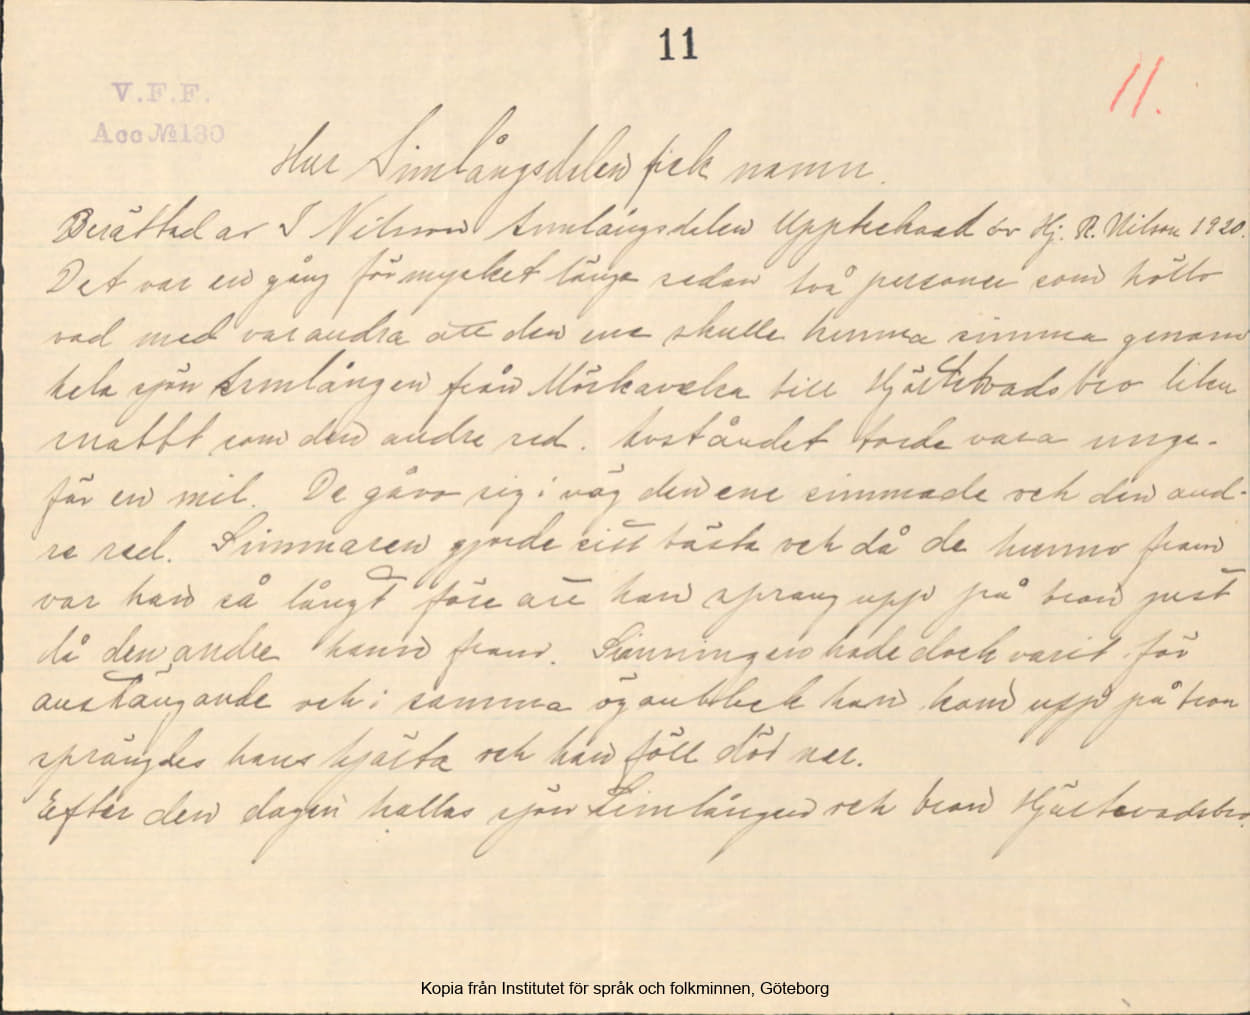 11
11.
V.F.F.
Acc №180
Hur Simlångsdalen fick namn.
Berättad av I Nilsson Simlångsdalen Upptecknad av Hj. R. Nilson 1920.
Det var en gång för mycket länge sedan två personer som höllo
vad med varandra att den ene skulle kunna simma genom
hela sjön Simlången från Mörkaveka till Hjärtevadsbro lika
snabbt som den andre red. Avståndet torde vara unge-
fär en mil. De gåvo sig i väg den ene simmade och den and-
re red. Simmaren gjorde sitt bästa och då de kunno fram
var han så långt före att han sprang upp på bron just
då den andre hann fram. Simningen hade dock varit för
ansträngande och i samma ögonblick han kom upp på bron
sprängdes hans hjärta och han föll död ner.
Efter den dagen kallas sjön Simlången och bron Hjärtevadsbro.
Kopia från Institutet för språk och folkminnen, Göteborg